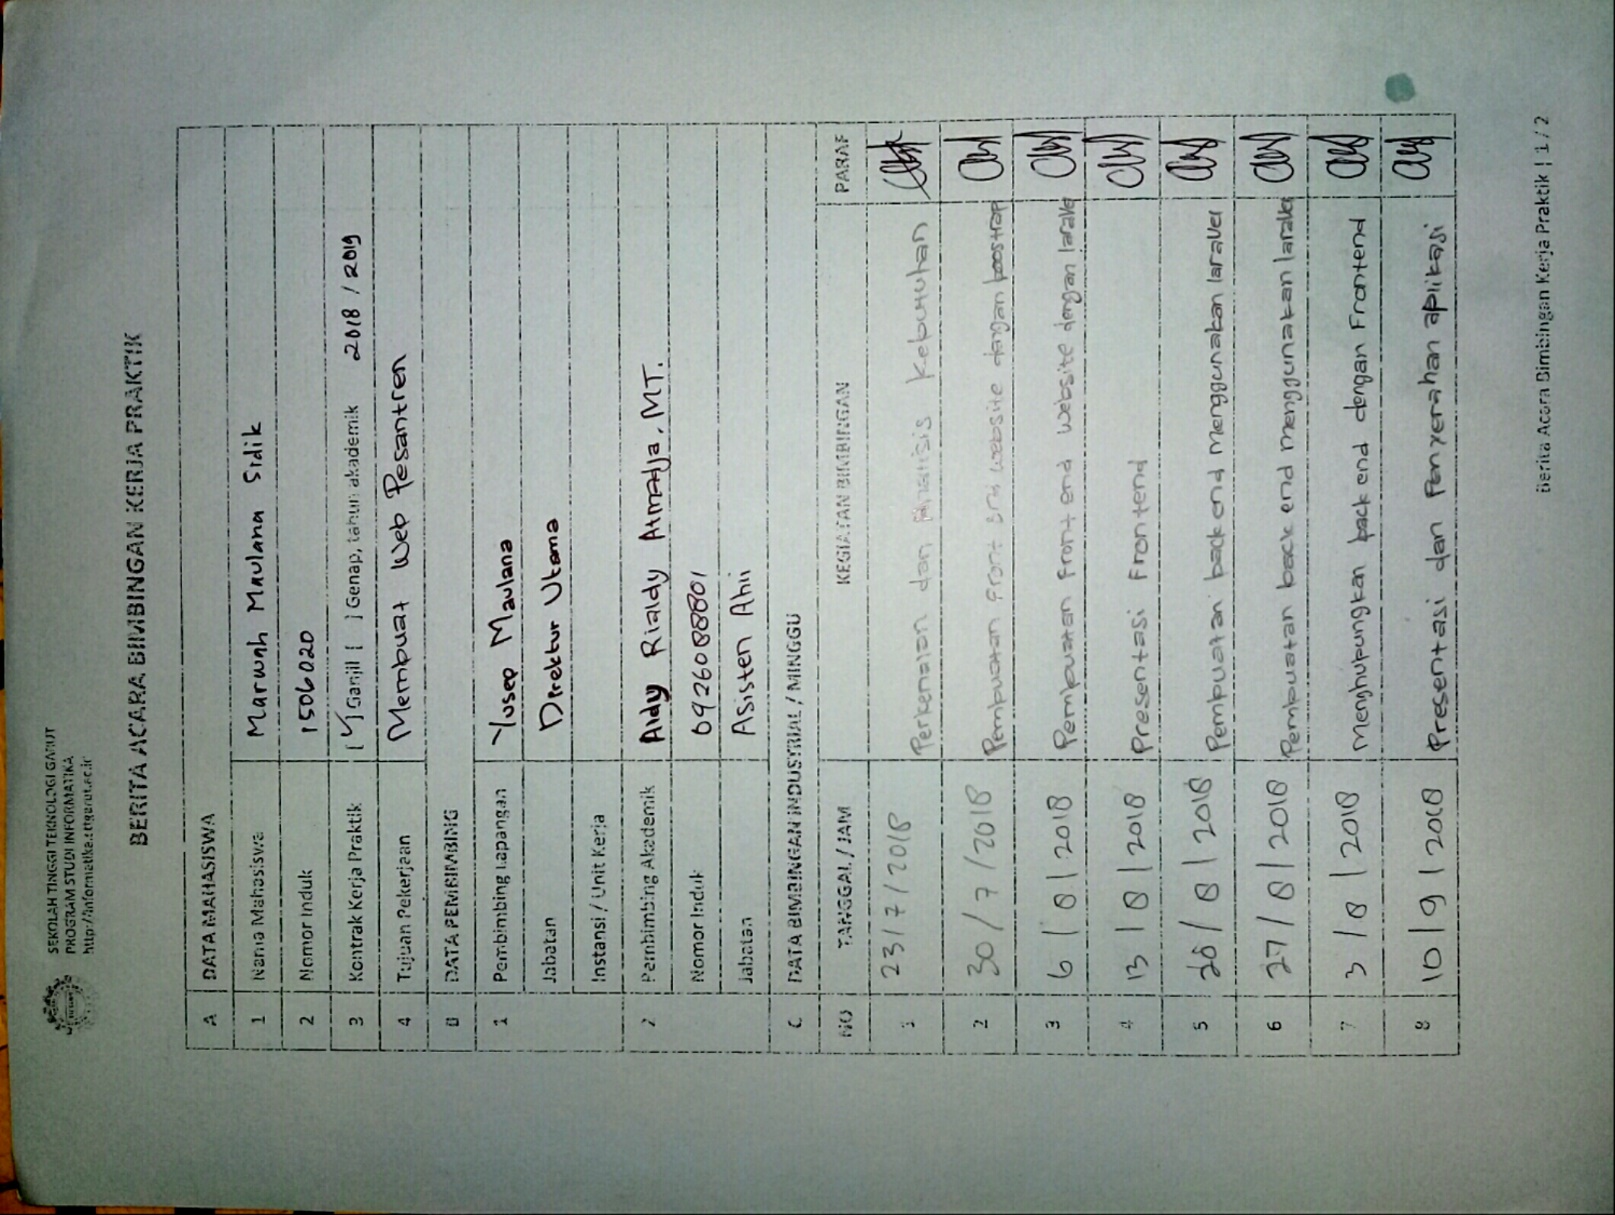 SEKOLAH TINGGI TEKNOLOGI GARUT
PROGRAM STUDI INFORMATIKA
http://informatika.sttgarut.ac.id
BERITA ACARA BIMBINGAN KERJA PRAKTIK
A DATA MAHASISWA
1 Nama Mahasiswa Marwah Maulana Sidik
2 Nomor Induk 1506020
3 Kontrak Kerja Praktik [√] Ganjil [ ] Genap, tahun akademik 2018 / 2019
4 Tujuan Pekerjaan Membuat Web Pesantren
B DATA PEMBIMBING
1 Pembimbing Lapangan Yusep Maulana
Jabatan Direktur Utama
Instansi / Unit Kerja
2 Pembimbing Akademik Aldy Rialdy Atmadja, MT.
Nomor Induk 0426088801
Jabatan Asisten Ahli
C DATA BIMBINGAN INDUSTRIAL / MINGGU
NO TANGGAL / JAM KEGIATAN BIMBINGAN PARAF
1 23 / 7 / 2018 Perkenalan dan Analisis Kebutuhan
2 30 / 7 / 2018 Pembuatan front end website dengan boostrap
3 6 / 8 / 2018 Pembuatan front end website dengan laravel
4 13 / 8 / 2018 Presentasi Frontend
5 20 / 8 / 2018 Pembuatan back end menggunakan laravel
6 27 / 8 / 2018 Pembuatan back end menggunakan laravel
7 3 / 8 / 2018 Menghubungkan back end dengan Frontend
8 10 / 9 / 2018 Presentasi dan Penyerahan aplikasi
Berita Acara Bimbingan Kerja Praktik | 1 / 2